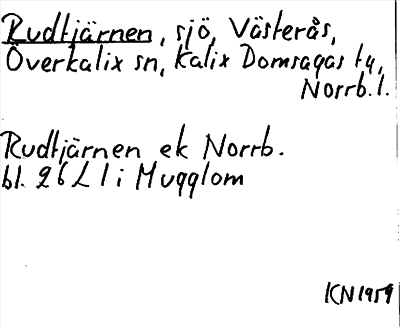 Rudtjärnen, sjö, Västerås,
Överkalix sn, Kalix Domsagas tg,
Norrb. l.
Rudtjärnen ek Norrb.
bl. 26 L 1 i Mugglom
KN 1959